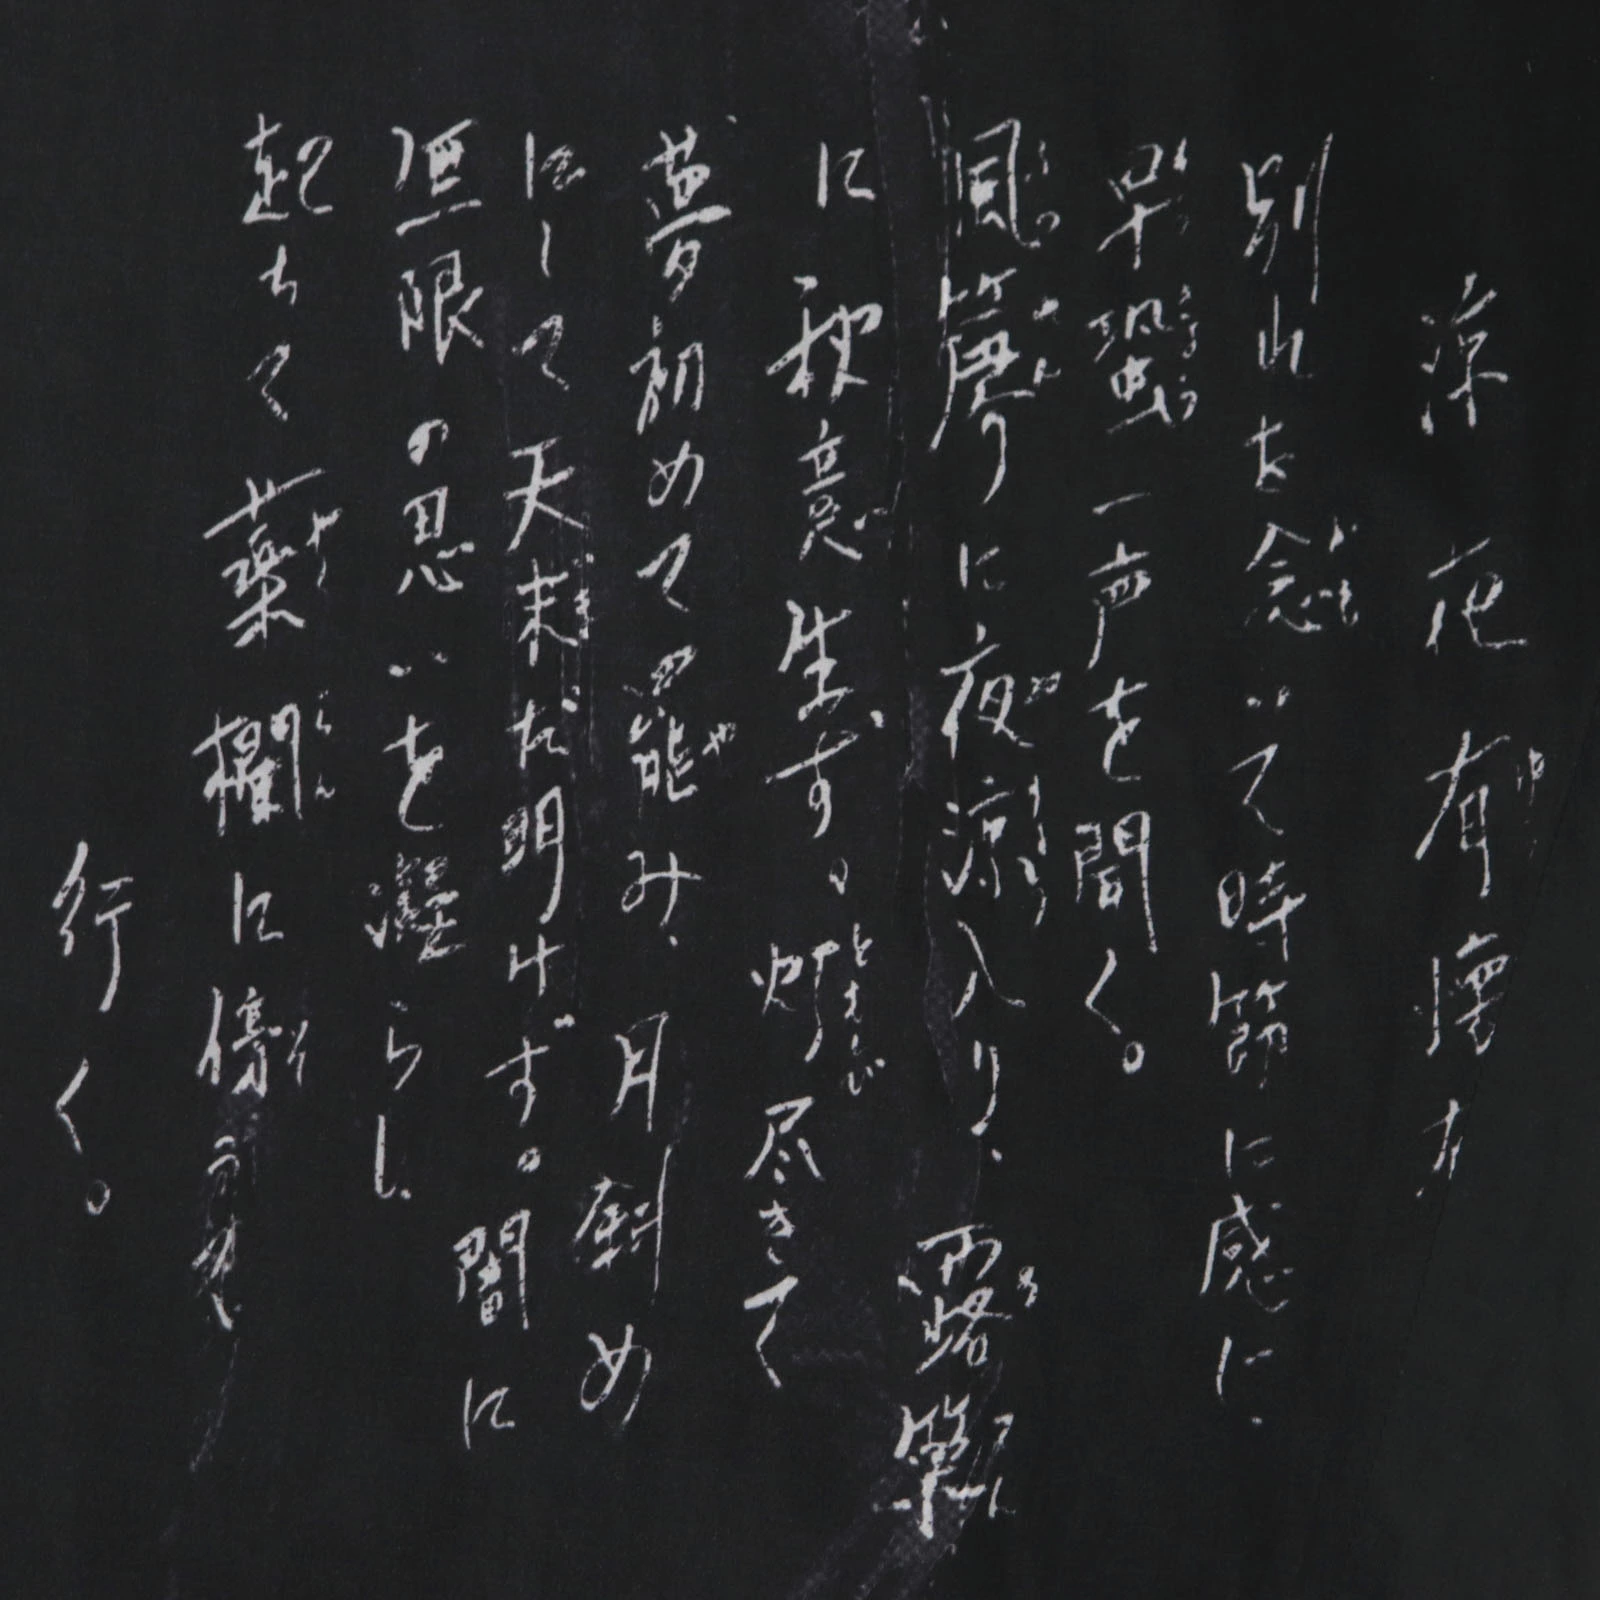 涼夜有懐
別れを念いて時節に感じ、
早蛩一声を聞く。
風簾に夜涼入り、露簟
に秋意生ず。灯尽きて
夢初めて罷み、月斜め
にして天未だ明けず。闇に
無限の思いを凝らし、
起ちて薬欄に傍うて
行く。